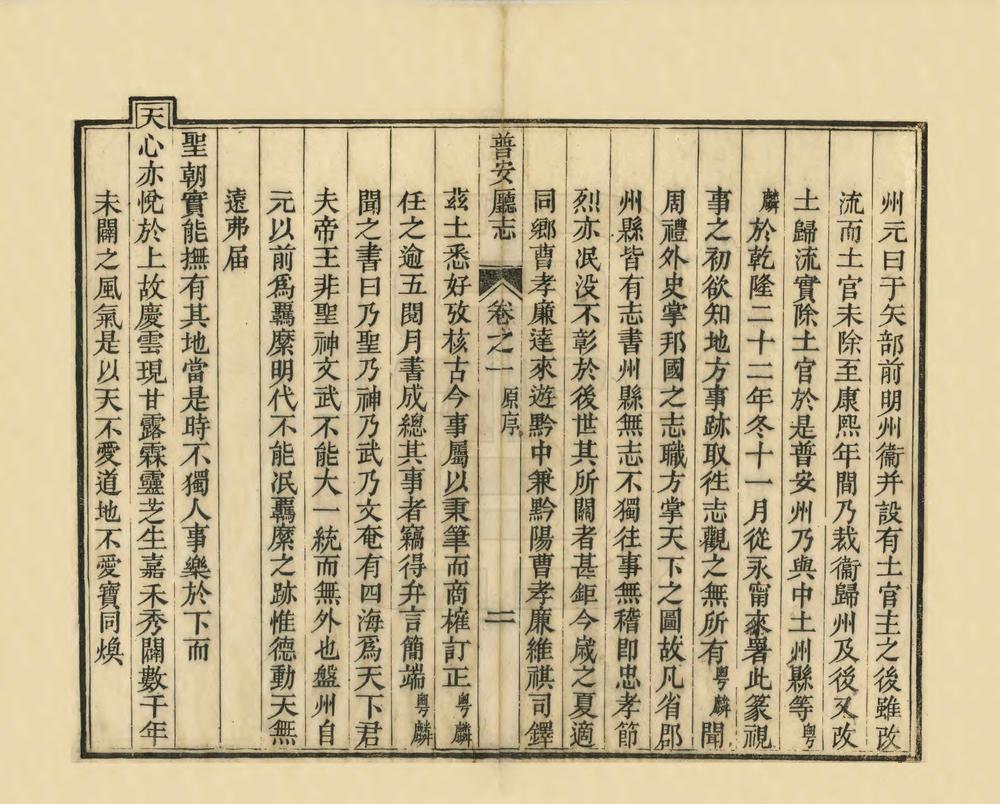 州元曰于矢部前明州衞并設有土官主之後雖改
流而土官未除至康熙年間乃裁衞歸州及後又改
土歸流實除土官於是普安州乃與中土州縣等粵
麟於乾隆二十二年冬十一月從永甯來署此篆視
事之初欲知地方事跡取徃志觀之無所有粵麟聞
周禮外史掌邦國之志職方掌天下之圖故凡省郡
州縣皆有志書州縣無志不獨往事無稽即忠孝節
烈亦泯没不彰於後世其所關者甚鉅今歲之夏適
同鄉曹孝廉達來遊黔中兼黔陽曹孝廉維祺司鐸
普安廳志 卷之一 原序 二
茲土悉好攷核古今事屬以秉筆而商榷訂正粵麟
任之逾五閱月書成總其事者竊得弁言簡端粵麟
聞之書曰乃聖乃神乃武乃文奄有四海爲天下君
夫帝王非聖神文武不能大一統而無外也盤州自
元以前爲羈縻明代不能泯羈縻之跡惟德動天無
遠弗屆
聖朝實能撫有其地當是時不獨人事樂於下而
天心亦悅於上故慶雲現甘露霖靈芝生嘉禾秀闢數千年
未闢之風氣是以天不愛道地不愛寶同煥